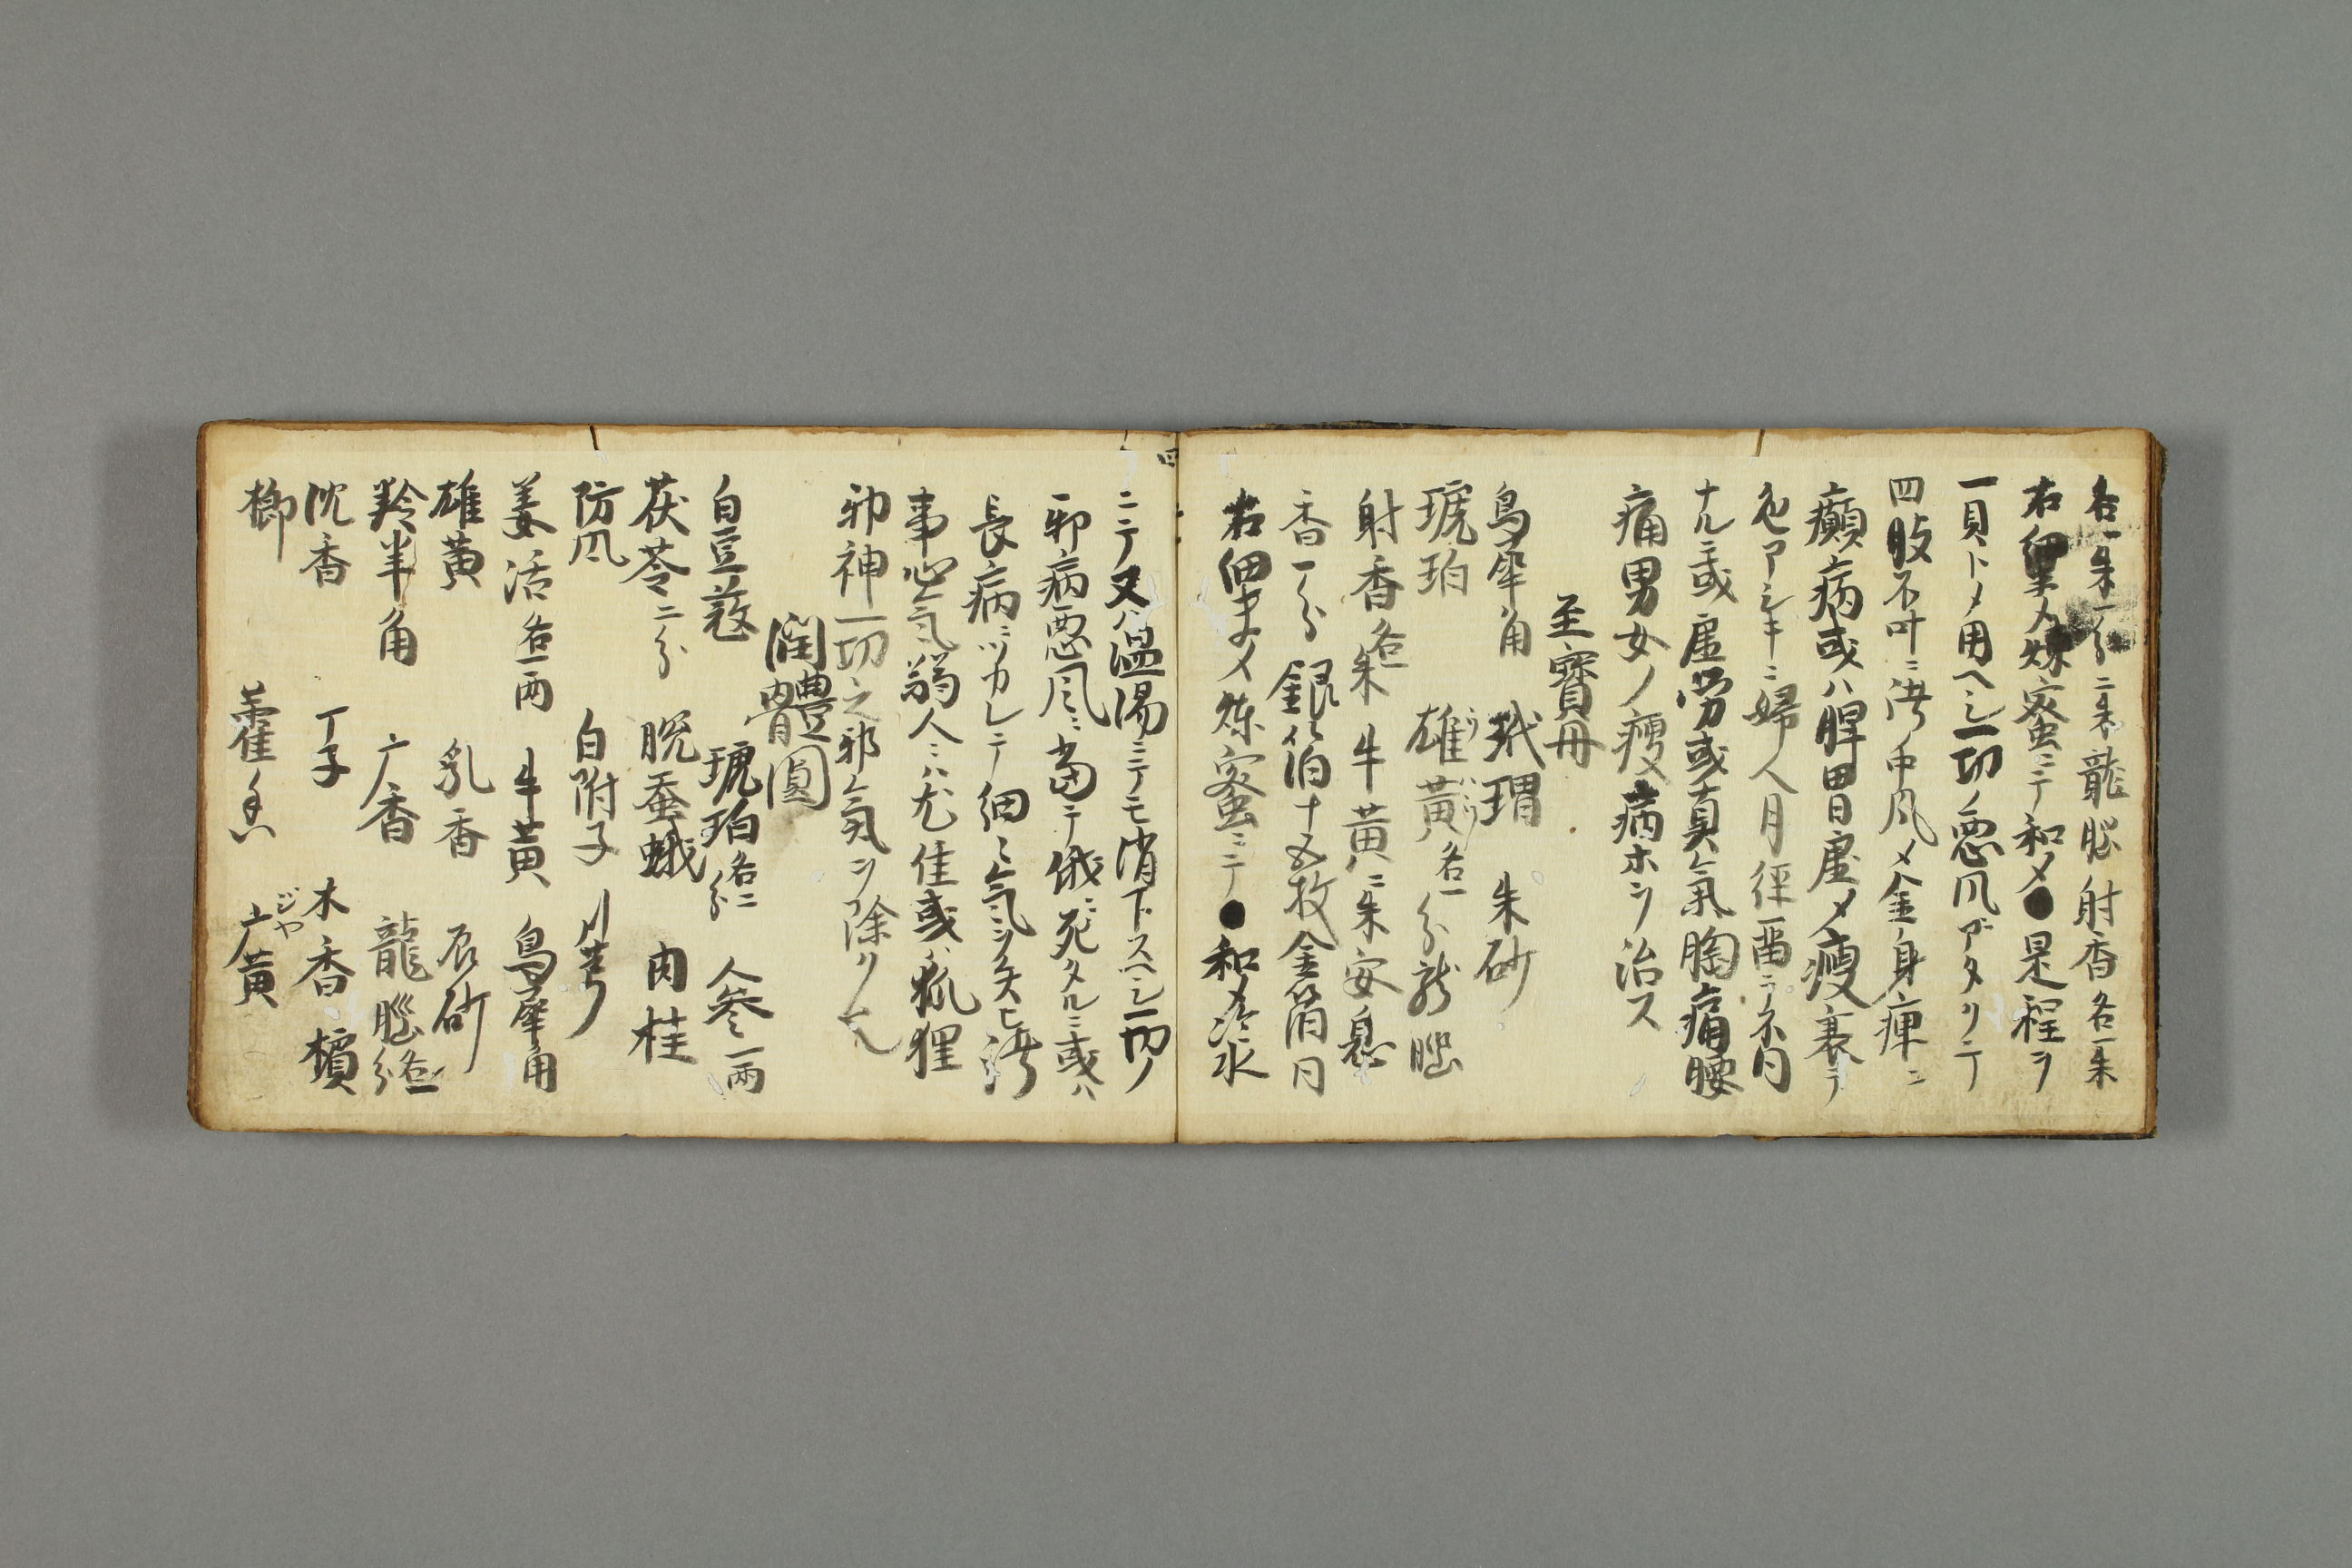 各一朱一分二朱龍脳射香各一朱
右細末メ煉蜜ニテ和メ●是程ヲ
一貝トメ用ヘシ一切ノ悪风アタリテ
四肢不叶ニ中風メ全身痺ニ
癲病或ハ脾胃虚メ瘦衰テ
色アシキニ婦人月経
ナルニ或虚労或真气氣胸痛腰
痛男女ノ瘦病ホヲ治ス
至寳丹
烏犀角 玳瑁 朱砂
琥珀 雄黄各一分龍脳
射香各一朱 牛黄二朱安息
香一分 銀伯十五枚金箔同
右細末メ煉蜜ニテ●和メ冷水
ニテ又ハ温湯ニテモ消下スヘシ一切ノ
邪病悪風ニ當テ俄ニ死タルニ或ハ
長病ニツカレテ細々气ヲ矢ヒ
事心气弱人ニハ尤佳或ハ狐狸
邪神一切之邪氣ヲ除ク也
潤體圓
白豆蔲 琥珀各二分 人参一兩
茯苓二分 晩蚕蛾 肉桂
防风 白附子 川芎
姜活各一两 牛黄 烏犀角
雄黄 乳香 辰砂
羚羊角 广香 龍脳各一分
沈香 丁子 木香 檳
榔 藿香 广黄